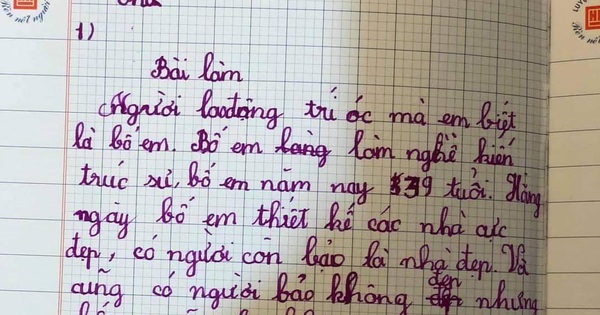 Rèn nét người
LUYỆ
Rèn nét
1)
Bài làm
Người laođộng trí óc mà em biết
là bố em. Bố em làng làm nghề kiến
trúc sư, bố em năm nay 39 tuổi. Hàng
ngày bố em thiết kế các nhà cực
đẹp, có người còn bảo là nhà đẹp. Và
cũng có người bảo không đẹp nhưng